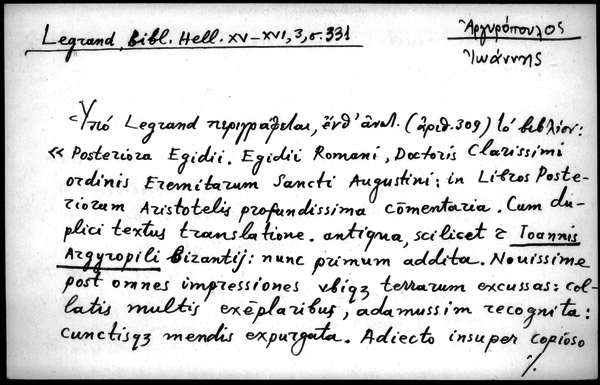 Legrand, Bibl. Hell. XV–XVI, 3, σ. 331
Ἀργυρόπουλος
Ἰωάννης
Ὑπό Legrand περιγράφεται, ἔνθ' ἀνωτ. (ἀριθ. 309) τό βιβλίον:
« Posteriora Egidii. Egidii Romani, Doctoris Clarissimi
ordinis Eremitarum Sancti Augustini: in Libros Poste-
riorum Aristotelis profundissima cōmentaria. Cum du-
plici textus translatione. antiqua, scilicet ⁊ Ioannis
Argyropili Bizantij: nunc primum addita. Nouissime
post omnes impressiones vbiqȝ terrarum excussas: col-
latis multis exēplaribus, adamussim recognita:
cunctisqȝ mendis expurgata. Adiecto insuper copioso
./.